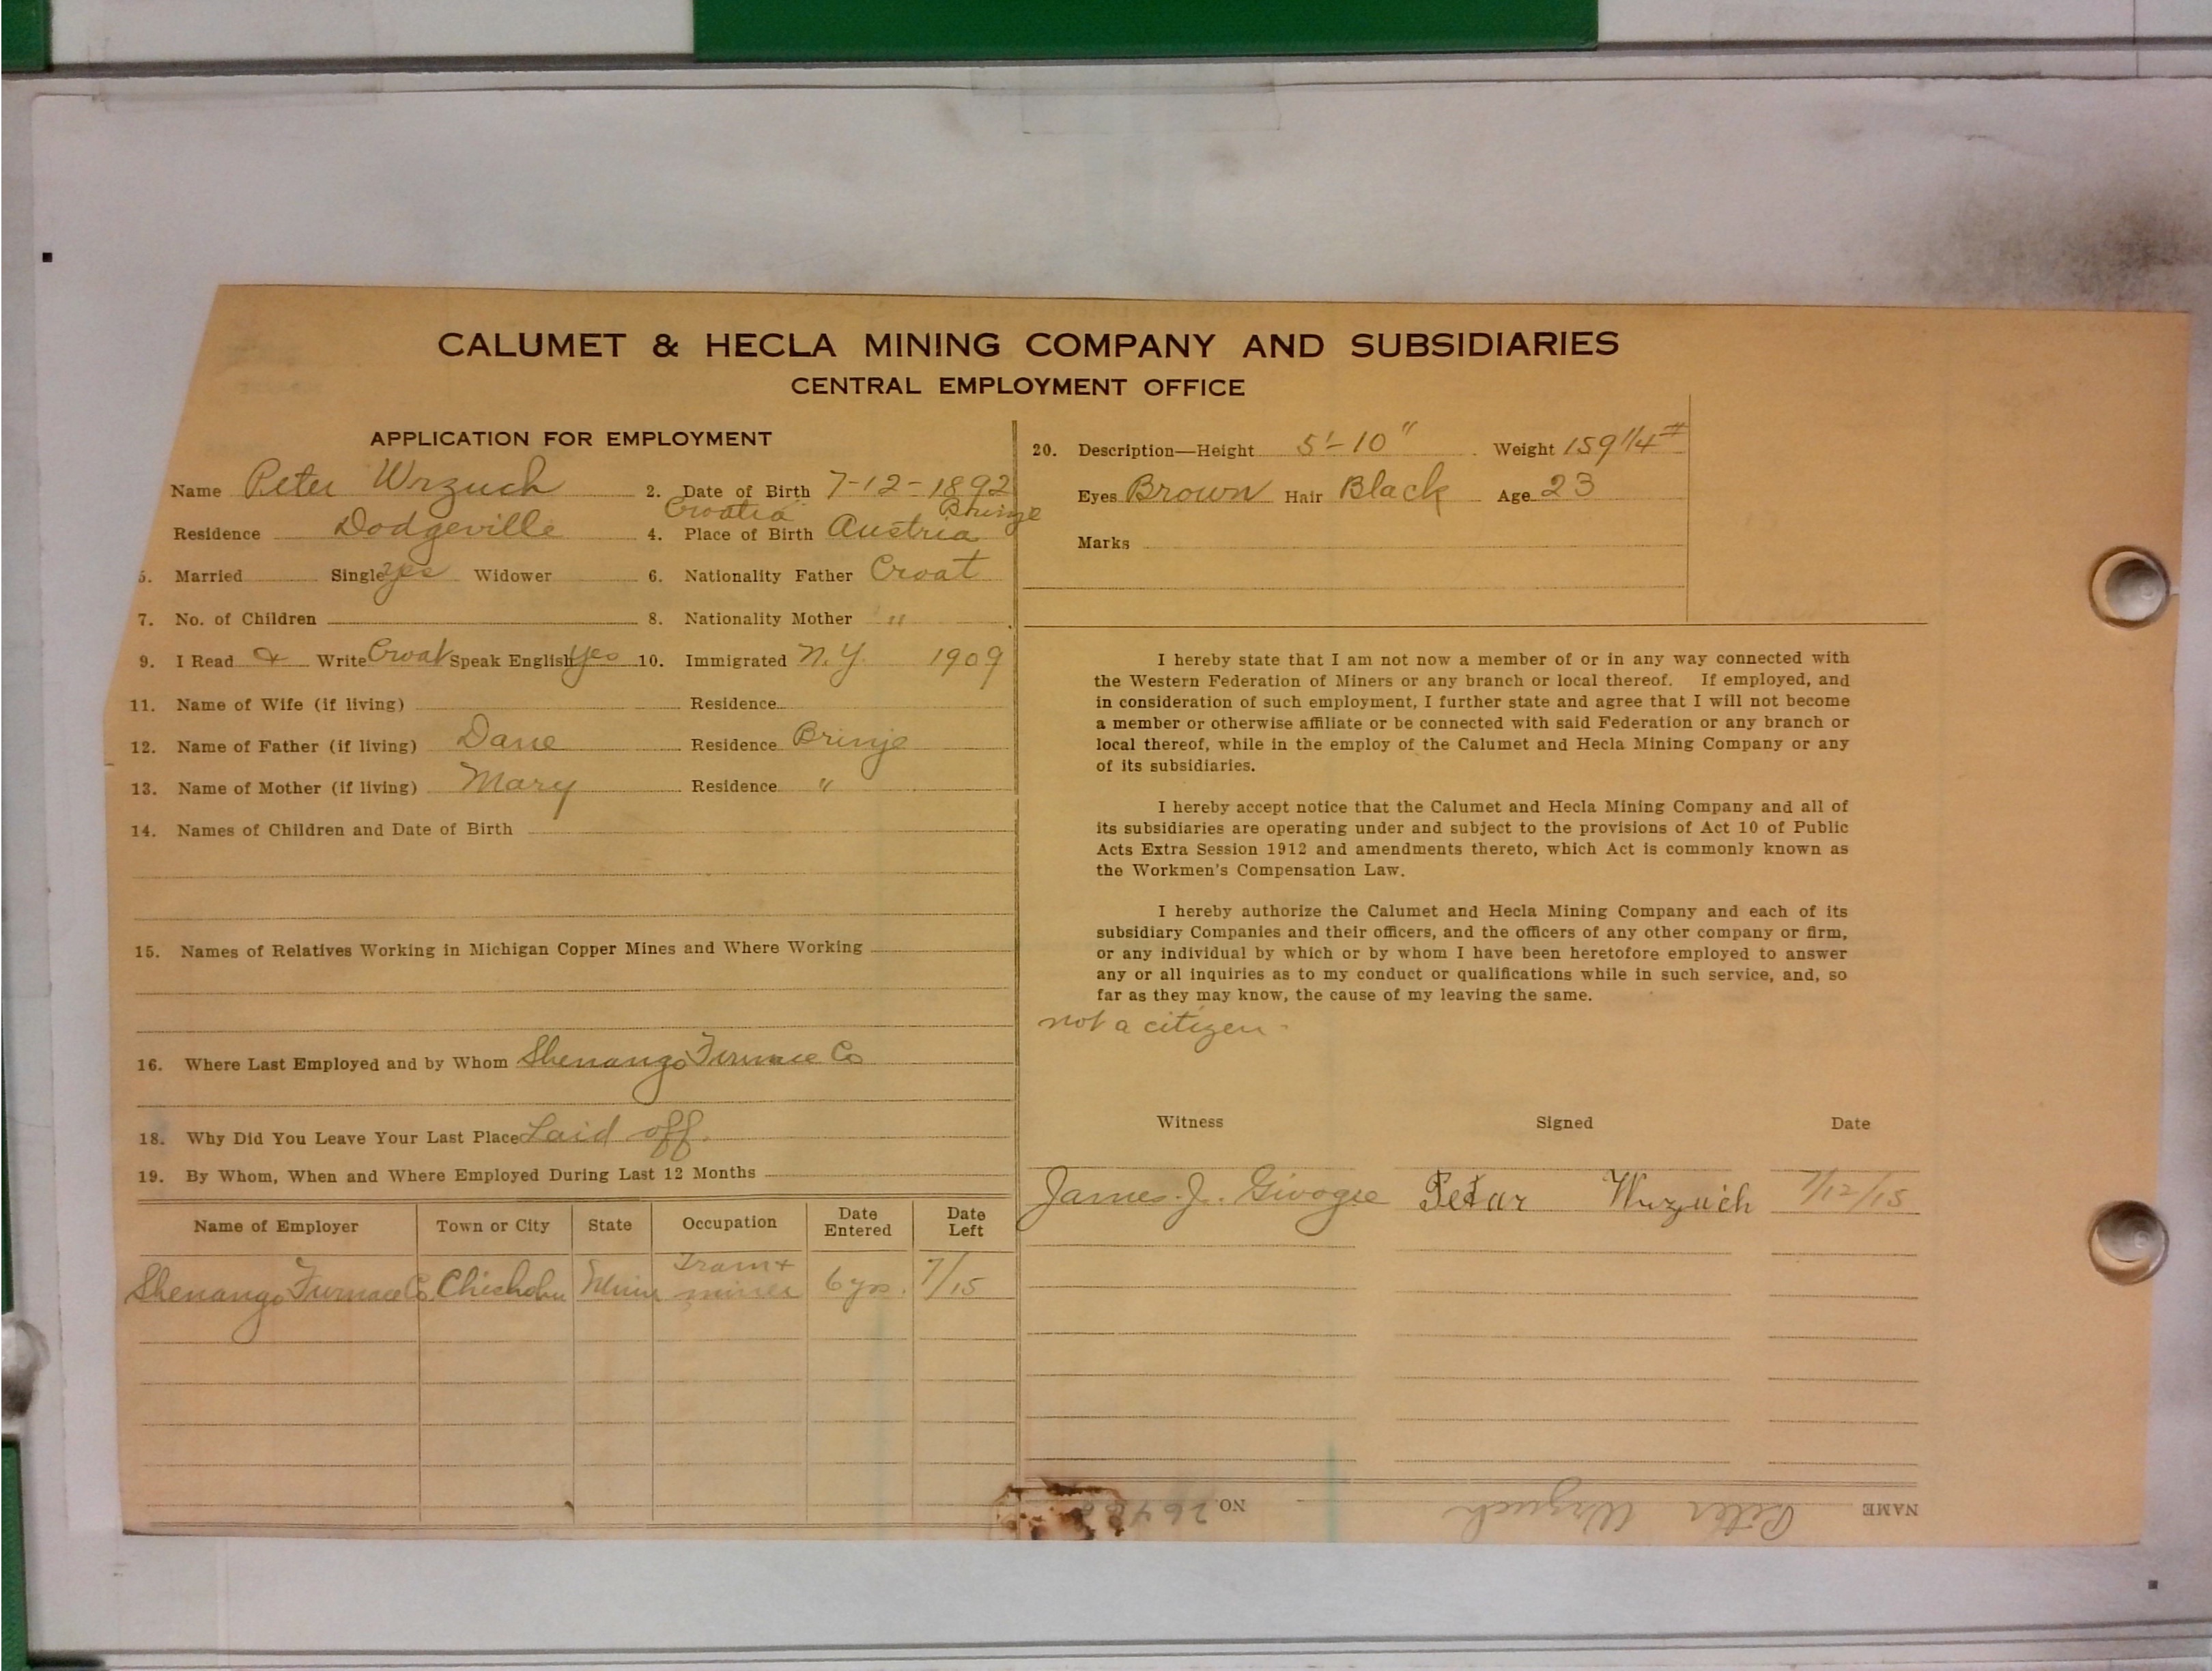 CALUMET & HECLA MINING COMPANY AND SUBSIDIARIES
CENTRAL EMPLOYMENT OFFICE
APPLICATION FOR EMPLOYMENT
Name Peter Wrzuch 2. Date of Birth 7-12-1892
Croatia Brinje
Residence Dodgeville 4. Place of Birth Austria
5. Married Single yes Widower 6. Nationality Father Croat
7. No. of Children 8. Nationality Mother "
9. I Read & Write Croat Speak English yes 10. Immigrated N.Y. 1909
11. Name of Wife (if living) Residence
12. Name of Father (if living) Dane Residence Brinje
13. Name of Mother (if living) Mary Residence "
14. Names of Children and Date of Birth
15. Names of Relatives Working in Michigan Copper Mines and Where Working
16. Where Last Employed and by Whom Shenango Furnace Co
18. Why Did You Leave Your Last Place Laid off.
19. By Whom, When and Where Employed During Last 12 Months
Name of Employer Town or City State Occupation Date Entered Date Left
Shenango Furnace Co Chisholm Minn Tram + miner 6 yrs. 7/15
20. Description—Height 5'-10" Weight 159 1/4 #
Eyes Brown Hair Black Age 23
Marks
I hereby state that I am not now a member of or in any way connected with
the Western Federation of Miners or any branch or local thereof. If employed, and
in consideration of such employment, I further state and agree that I will not become
a member or otherwise affiliate or be connected with said Federation or any branch or
local thereof, while in the employ of the Calumet and Hecla Mining Company or any
of its subsidiaries.
I hereby accept notice that the Calumet and Hecla Mining Company and all of
its subsidiaries are operating under and subject to the provisions of Act 10 of Public
Acts Extra Session 1912 and amendments thereto, which Act is commonly known as
the Workmen's Compensation Law.
I hereby authorize the Calumet and Hecla Mining Company and each of its
subsidiary Companies and their officers, and the officers of any other company or firm,
or any individual by which or by whom I have been heretofore employed to answer
any or all inquiries as to my conduct or qualifications while in such service, and, so
far as they may know, the cause of my leaving the same.
not a citizen
Witness Signed Date
James J. Petar Wrzuch 7/12/15
NAME Peter Wrzuch NO.